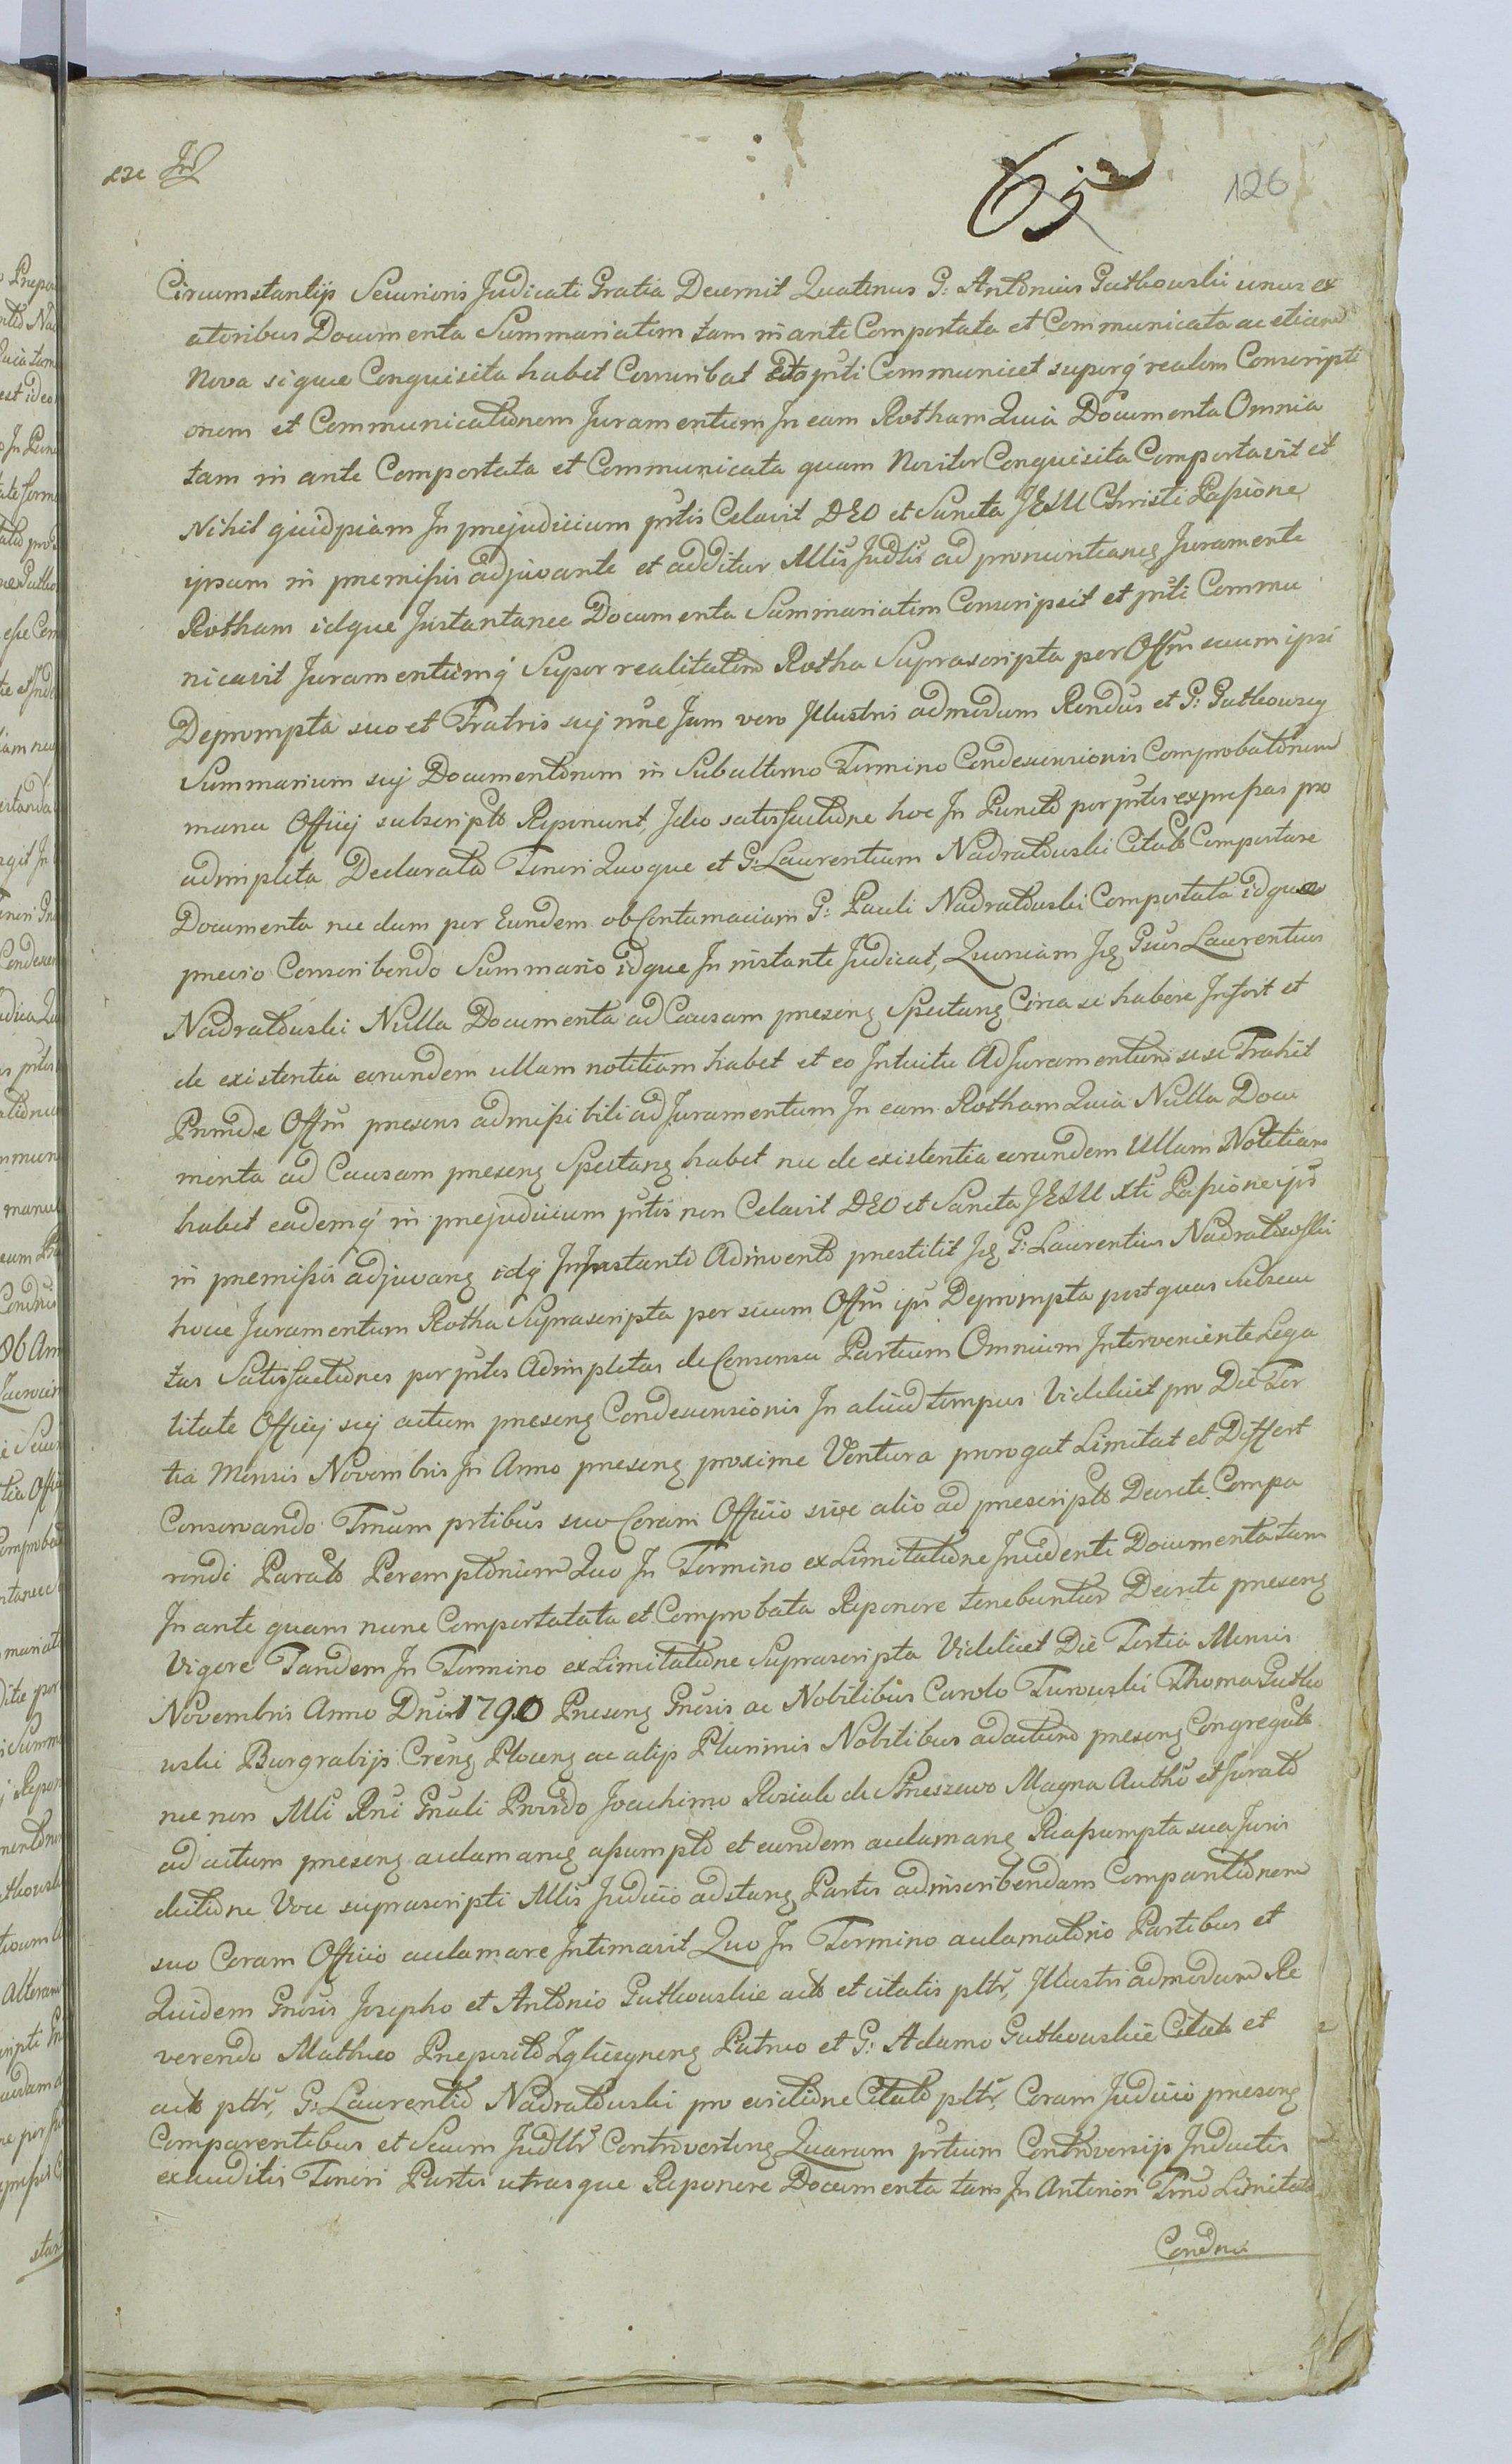 65
126
Circumstantijs Securioris Judicati Gratia Decernit Quatenus G: Antonius Gutkowski unus ex
atoribus Documenta Summariatim tam in ante Comportata et Communicata ac etiam
Nova si quæ Conquisita habet Conscribat Communicet superq́ realem Conscripti
onem et Communicationem Juramentum In eam Rotham Quia Documenta Omnia
tam in ante Comportata et Communicata quam Noviter Conquisita Comportavit et
Nihil quidpiam In prejudicium prtis Celavit DEO et Sancta JESU Christi Passione
ipsum in premissis adjuvante et additur Mlis Judlis ad pronuntianq Juramenti
Rotham idque Instantanee Documenta Summariatim Conscripsit et prti Commu
nicavit Juramentumq́ Super realitatem Rotha Suprascripta per Offm suum ipsi
Deprompta suo et Fratris suj nne Jam vero Illustris admodum Rendus et G: Gutkowscy
Summarium suj Documentorum in Subalterno Termino Condescensionis Comprobatorum
manu Officij subscripto Reponunt, Ideo satisfactione hoc In Puncto per prtes expressas pro
adimpleta Declarata Teneri Quoque et G: Laurentium Nadratowski Citato Comportare
Documenta nec dum per Eundem ob Contumaciam G: Pauli Nadratowski Comportata idque
previo Conscribendo Summario idque In instante Judicat, Quoniam Jq Gnus Laurentius
Nadratowski Nulla Documenta ad Causam presenq Spectanq Circa se habere Infert et
de existentia eorundem ullam notitiam habet et eo Intuitu Ad Juramentum sese Trahit
Proinde Offm presens admissibili ad Juramentum In eam Rotham Quia Nulla Docu
menta ad Causam presenq Spectanq habet nec de existentia eorundem Ullam Notitiam
habet eademq́ in prejudicium prtis non Celavit DEO et Sancta JESU Xti Passione ips
in premissis adjuvanq idq́ In Instanti Adinvento prestitit Jq G: Laurentius Nadratowski
hocce Juramentum Rotha Suprascripta per suum Offm ipsi Deprompta post quas Subsecu
tas Satisfactiones per prtes Adimpletas de Consensu Partium Omnium Interveniente Lega
litate Officij suj actum presenq Condescensionis In aliud tempus Videlicet pro Die Ter
tia Mensis Novembris In Anno presenq proxime Ventura prorogat Limitat et Differt
Conservando Tmum prtibus suo Coram Officio sive alio ad prescripto Decreti Compa
rendi Parato Peremptorium Quo In Termino ex Limitatione Incidenti Documenta tam
In ante quam nunc Comportatata et Comprobata Reponere tenebuntur Decreti presenq
Vigore Tandem In Termino ex Limitatione Suprascripta Videlicet Die Tertia Mensis
Novembris Anno Dni 1790 Presenq Gnosis ac Nobilibus Carolo Turowski Thoma Gutko
wski Burgrabijs Crenq Plocenq ac alijs Plurimis Nobilibus ad actum presenq Congregato
nec non Mli Rni Gnali Provido Joachimo de Magna Autho et Jurato
ad actum presenq acclamanq assumpto et eundem acclamanq Reassumpta sua Juris
dictione Voce suprascripti Mlis Judicio adstanq Partes ad inscribendam Comparitionem
suo Coram Officio acclamare Intimavit Quo In Termino acclamatorio Partibus et
Quidem Gnosis Josepho et Antonio Gutkowskie acto et citatis pltr, Illustri admodum Re
verendo Matheo Preposito Patruo et G: Adamo Gutkowskie Citato et
acto pltr, G: Laurentio Nadratowski pro evictione Citato pltr, Coram Judicio presenq
Comparentibus et Secum Judltr Controvertenq Quarum prtium Controversijs Inductis
exauditis Teneri Partes utrasque Reponere Documenta tam In Anteriori Tmo Limitato
Condnis